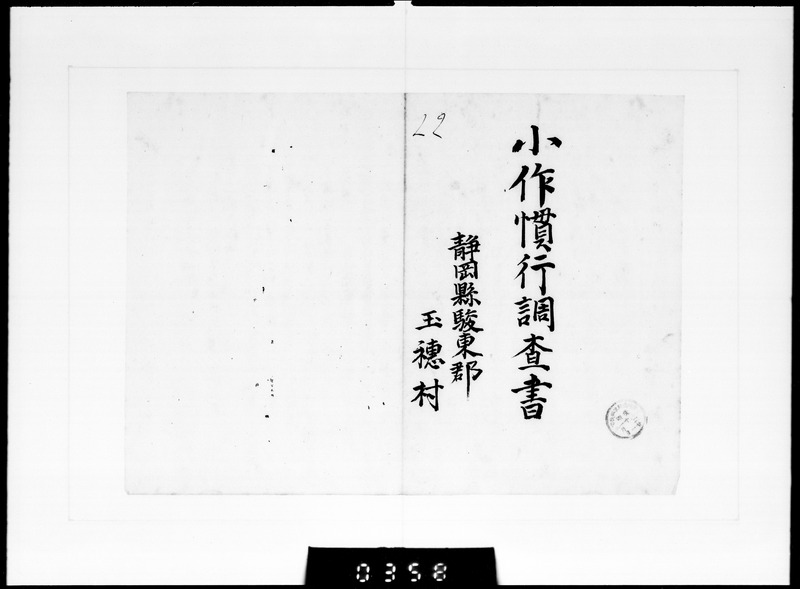 小作慣行調査書
靜岡縣駿東郡
玉穗村
22
0358